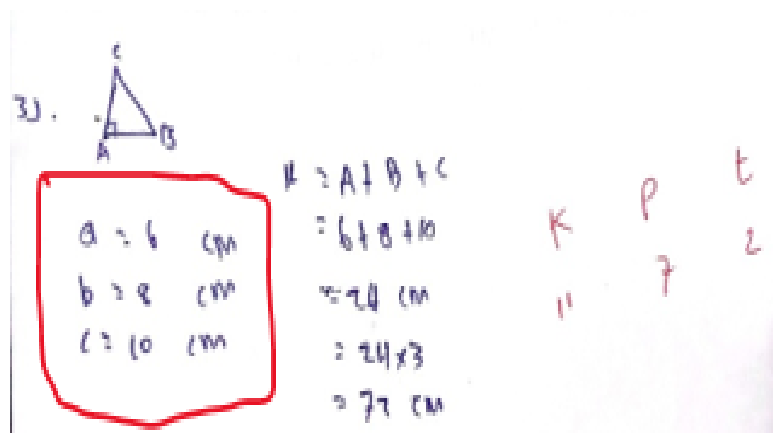 3).
C
A B
a = 6 cm
b = 8 cm
c = 10 cm
K = A + B + C
= 6 + 8 + 10
= 24 cm
= 24 x 3
= 72 cm
K P t
11 7 2